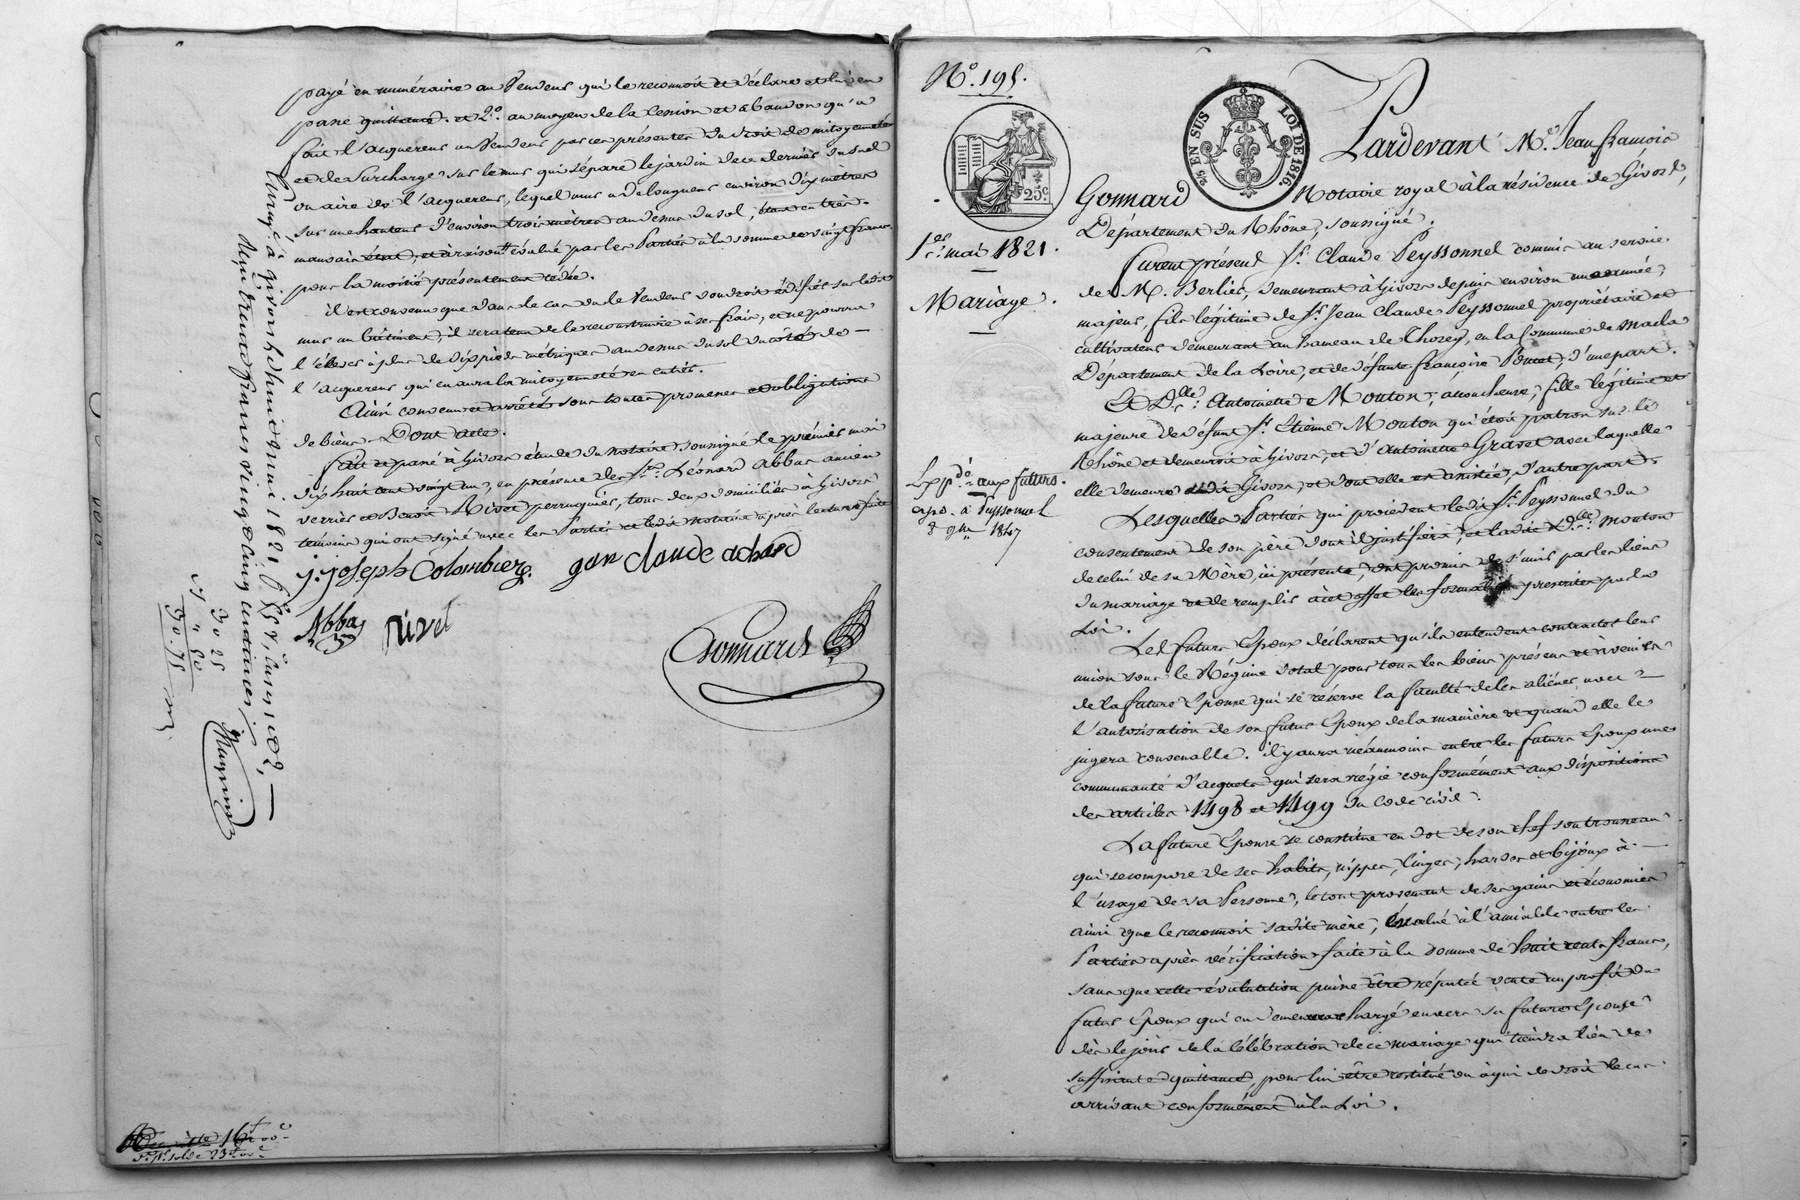 payé en numéraire au Vendeur qui le reconnoit et déclare et lui en
passe quittance. et 2.º au moyen de la cession et abandon qu'a
fait l'acquereur au Vendeur par ces présentes du droit de mitoyenneté
et de surcharge sur le mur qui sépare le jardin de ce dernier du sud
ou aire de l'acquereur, lequel mur a de longueur environ dix mètres
sur une hauteur d'environ trois mètres au dessus du sol, étant en très
mauvais état, et à raison évalué par les Parties à la somme de vingt francs
pour la moitié présentement cédée.
il est convenu que dans le cas où le Vendeur voudroit édifier sur ledit
mur un bâtiment, il sera tenu de le reconstruire à ses frais, et ne pourra
l'élever à plus de dix pieds métriques au dessus du sol du côté de
l'acquereur qui en aura la mitoyenneté en entier.
Ainsi convenu et arrêté sous toutes promesses et obligations
de biens. Dont acte.
fait et passé à Givors étude du notaire soussigné le premier mai
dix huit cent vingt un, en présence des Srs. Léonard Abbas ancien
verrier et Benoit Rivet perruquier, tous deux domiciliés à Givors
témoins qui ont signé avec les Parties et ledit notaire après lecture faite
j. joseph Colombier. jean claude achard
Abbas Rivet
Gonnard
Enregé à Givors le huit mai 1821
deux francs vingt cinq centimes
30 25
30.75
N.º 195.
25 EN SUS
LOI DE 1816
25c
1.er mai 1821.
Mariage.
Exp.dº aux futurs.
expd. à Peyssonnel
8 9bre 1847
Pardevant M.e Jean françois
Gonnard Notaire royal à la résidence de Givors,
Département du Rhône, soussigné.
furent présens Sr. Claude Peyssonnel commis au service
de M. Berlier, demeurant à Givors depuis environ une année,
majeur, fils légitime de Sr. Jean Claude Peyssonnel propriétaire et
cultivateur demeurant au hameau de Chozey, en la Commune de Macla
Département de la Loire, et de défunte françoise Poncet, d'une part.
Et D.lle Antoinette Mouton, accoucheuse, fille légitime et
majeure de défunt Sr. Etienne Mouton qui étoit patron sur le
Rhône et demeuroit à Givors, et d'Antoinette Gravet avec laquelle
elle demeure audit Givors, et dont elle est assistée, d'autre part.
Lesquelles Parties qui procèdent ledit Sr. Peyssonnel du
consentement de son père dont il justifiera, et ladite D.lle Mouton
de celui de sa Mère, ici présente, ont promis de s'unir par les liens
du mariage et de remplir à cet effet les formalités prescrites par la
Loi.
Les futurs Epoux déclarent qu'ils entendent contracter leur
union sous le Régime dotal pour tous les biens présens et à venir
de la future Epouse qui se réserve la faculté de les aliéner avec
l'autorisation de son futur Epoux de la manière et quand elle le
jugera convenable. il y aura néanmoins entre les futurs Epoux une
communauté d'acquets qui sera régie conformément aux dispositions
des articles 1498 et 1499 du Code civil.
La future Epouse se constitue en dot de son chef son trousseau
qui se compose de ses habits, nippes, linges, hardes et bijoux à
l'usage de sa Personne, le tout provenant de ses gains et économies
ainsi que le reconnoit sadite mère, évalué à l'amiable entre les
Parties après vérification faite à la somme de huit cents francs,
sans que cette évaluation puisse être réputée vente au profit du
futur Epoux qui en demeurera chargé envers sa future Epouse
dès le jour de la célébration de ce mariage qui tiendra lieu de
suffisante quittance, pour lui être restitué ou à qui de droit le cas
arrivant conformément à la Loi.